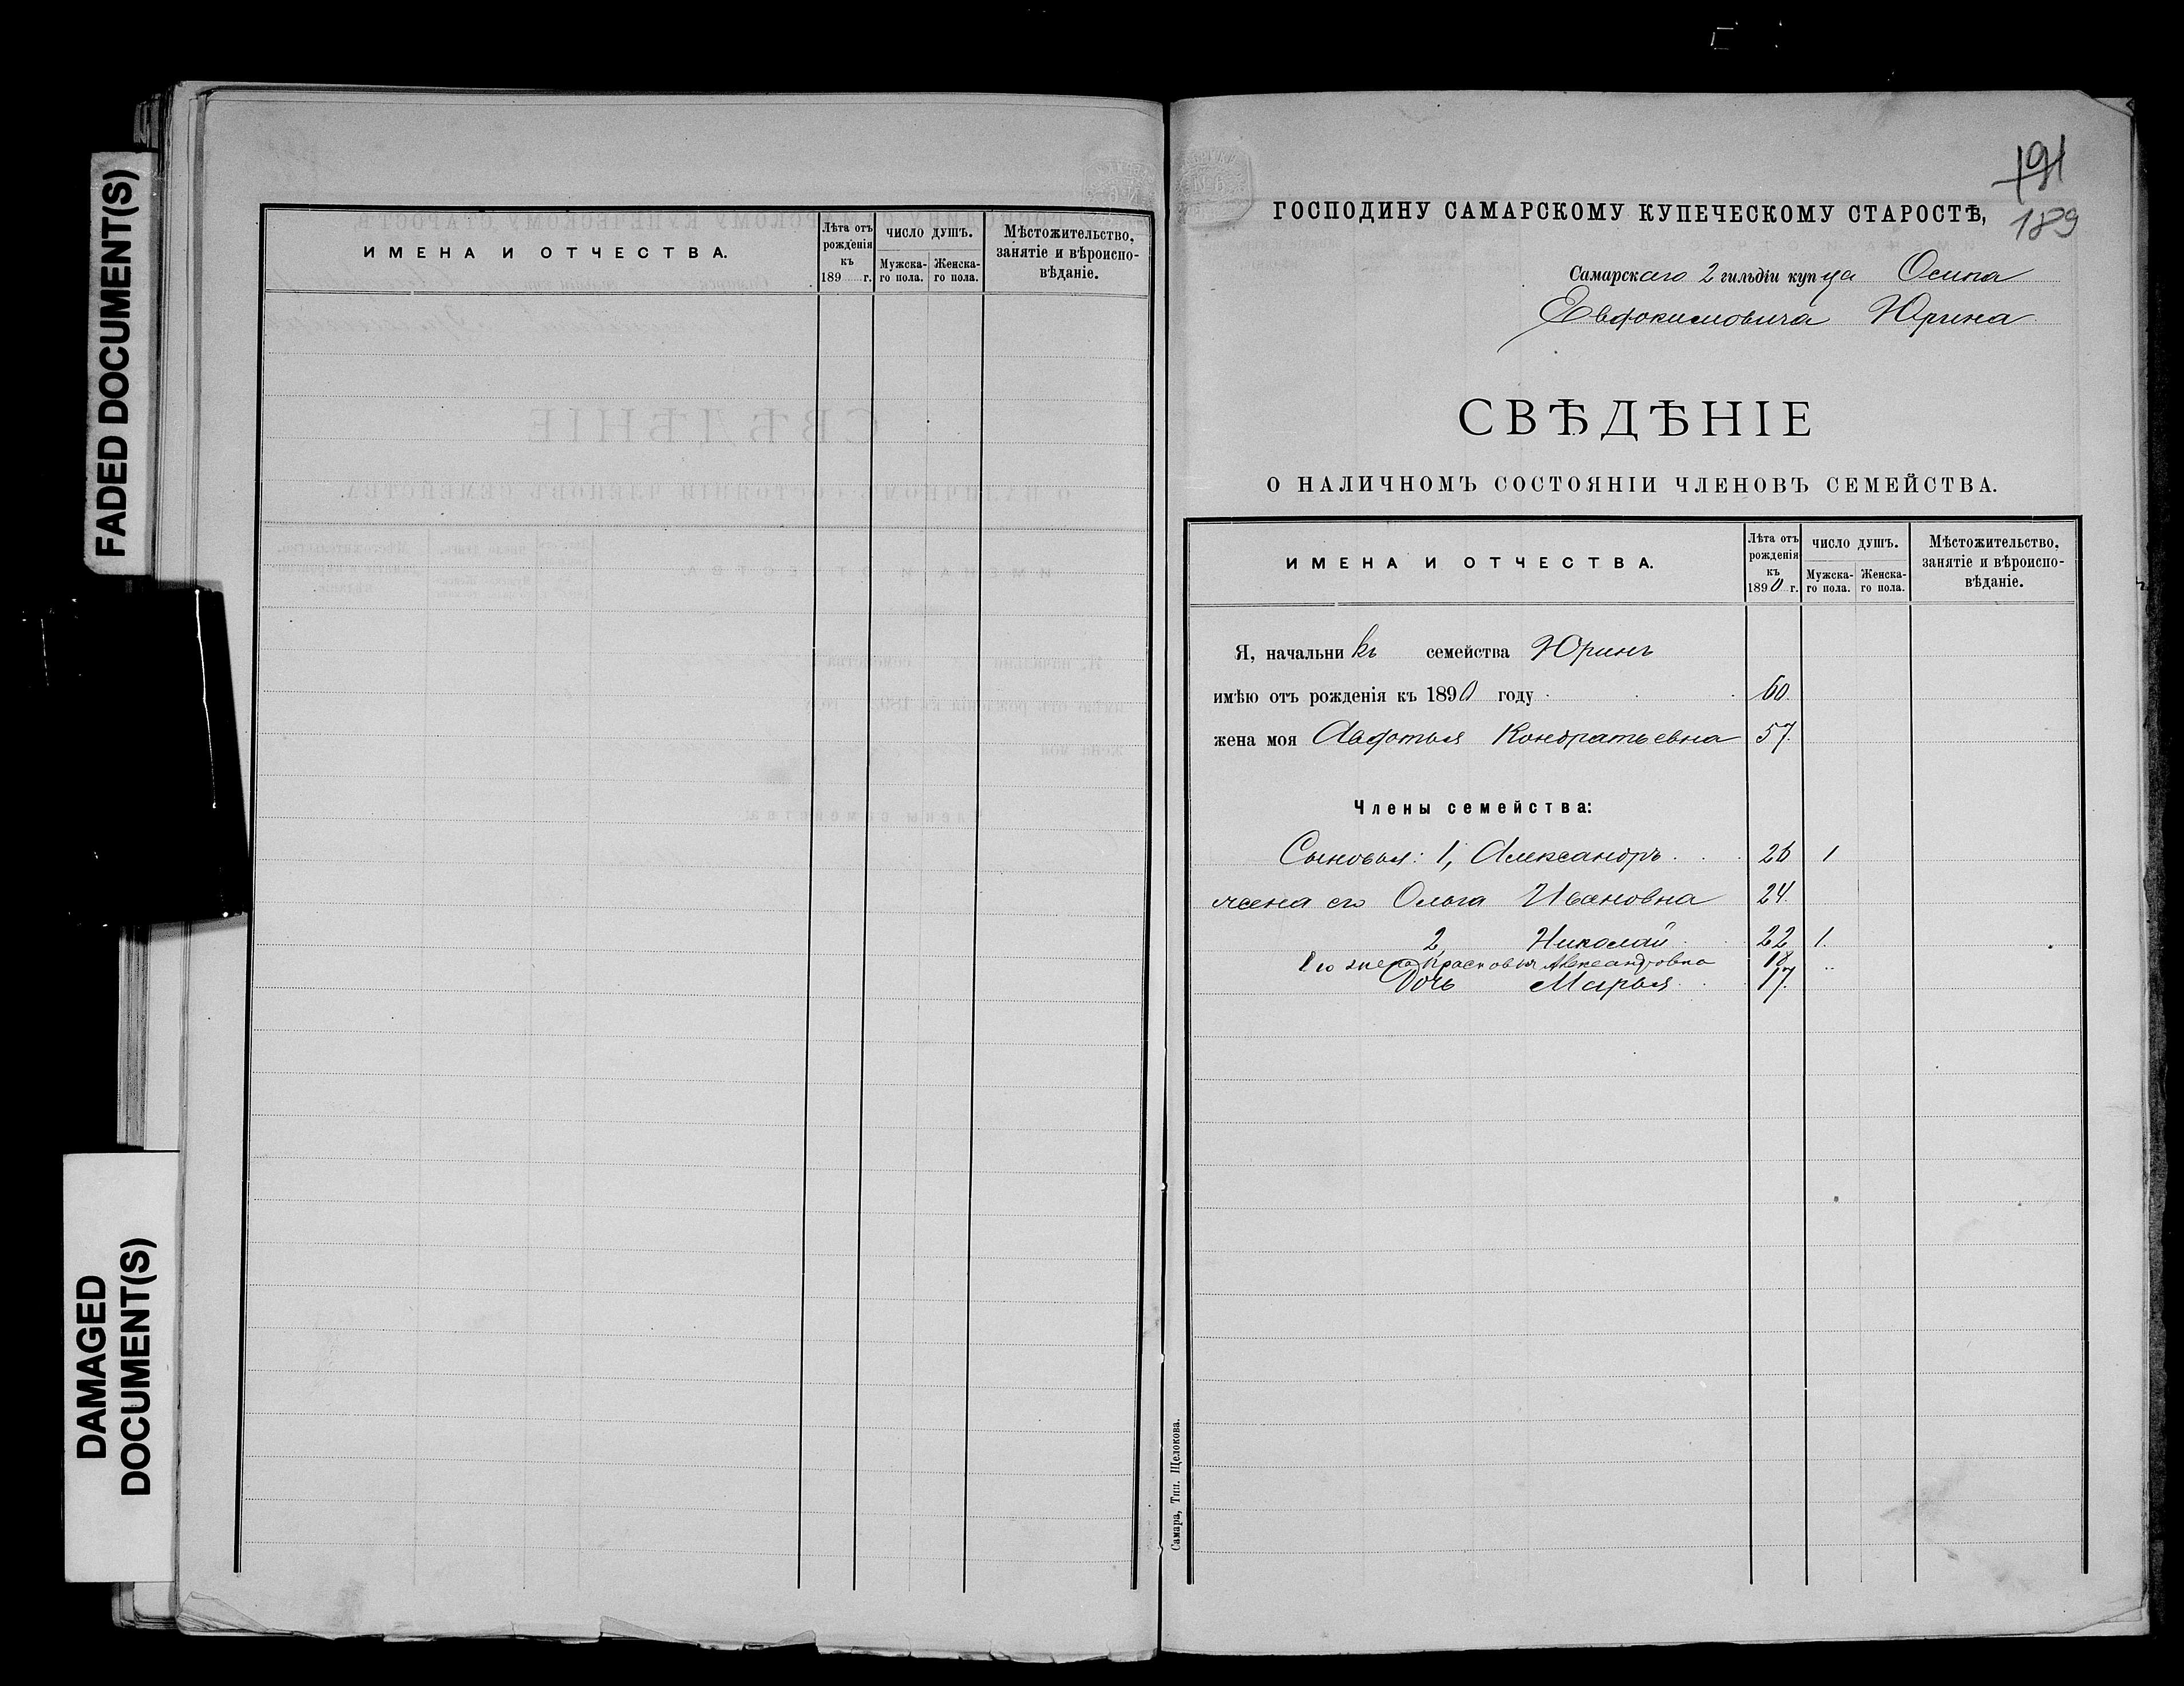 FADED DOCUMENT(S)
DAMAGED
DOCUMENT(S)
ИМЕНА И ОТЧЕСТВА.
Лѣта отъ
рожденія
къ
189 г.
ЧИСЛО ДУШЪ.
Мужска-
го пола.
Женска-
го пола.
Мѣстожительство,
занятіе и вѣроиспо-
вѣданіе.
191
189
ГОСПОДИНУ САМАРСКОМУ КУПЕЧЕСКОМУ СТАРОСТѢ,
Самарскаго 2 гильдіи купца Осипа
Евдокимовича Юрина
СВѢДѢНІЕ
О НАЛИЧНОМЪ СОСТОЯНІИ ЧЛЕНОВЪ СЕМЕЙСТВА.
ИМЕНА И ОТЧЕСТВА.
Лѣта отъ
рожденія
къ
1890 г.
ЧИСЛО ДУШЪ.
Мужска-
го пола.
Женска-
го пола.
Мѣстожительство,
занятіе и вѣроиспо-
вѣданіе.
Я, начальникъ семейства Юринъ
имѣю отъ рожденія къ 1890 году 60.
жена моя Авдотья Кондратьевна 57.
Члены семейства:
Сыновья: 1, Александръ 26 1
жена его Ольга Ивановна 24.
2, Николай 22 1.
Его жена Прасковья Александровна 18
Дочь Марья 17.
Самара, Тип. Щелокова.